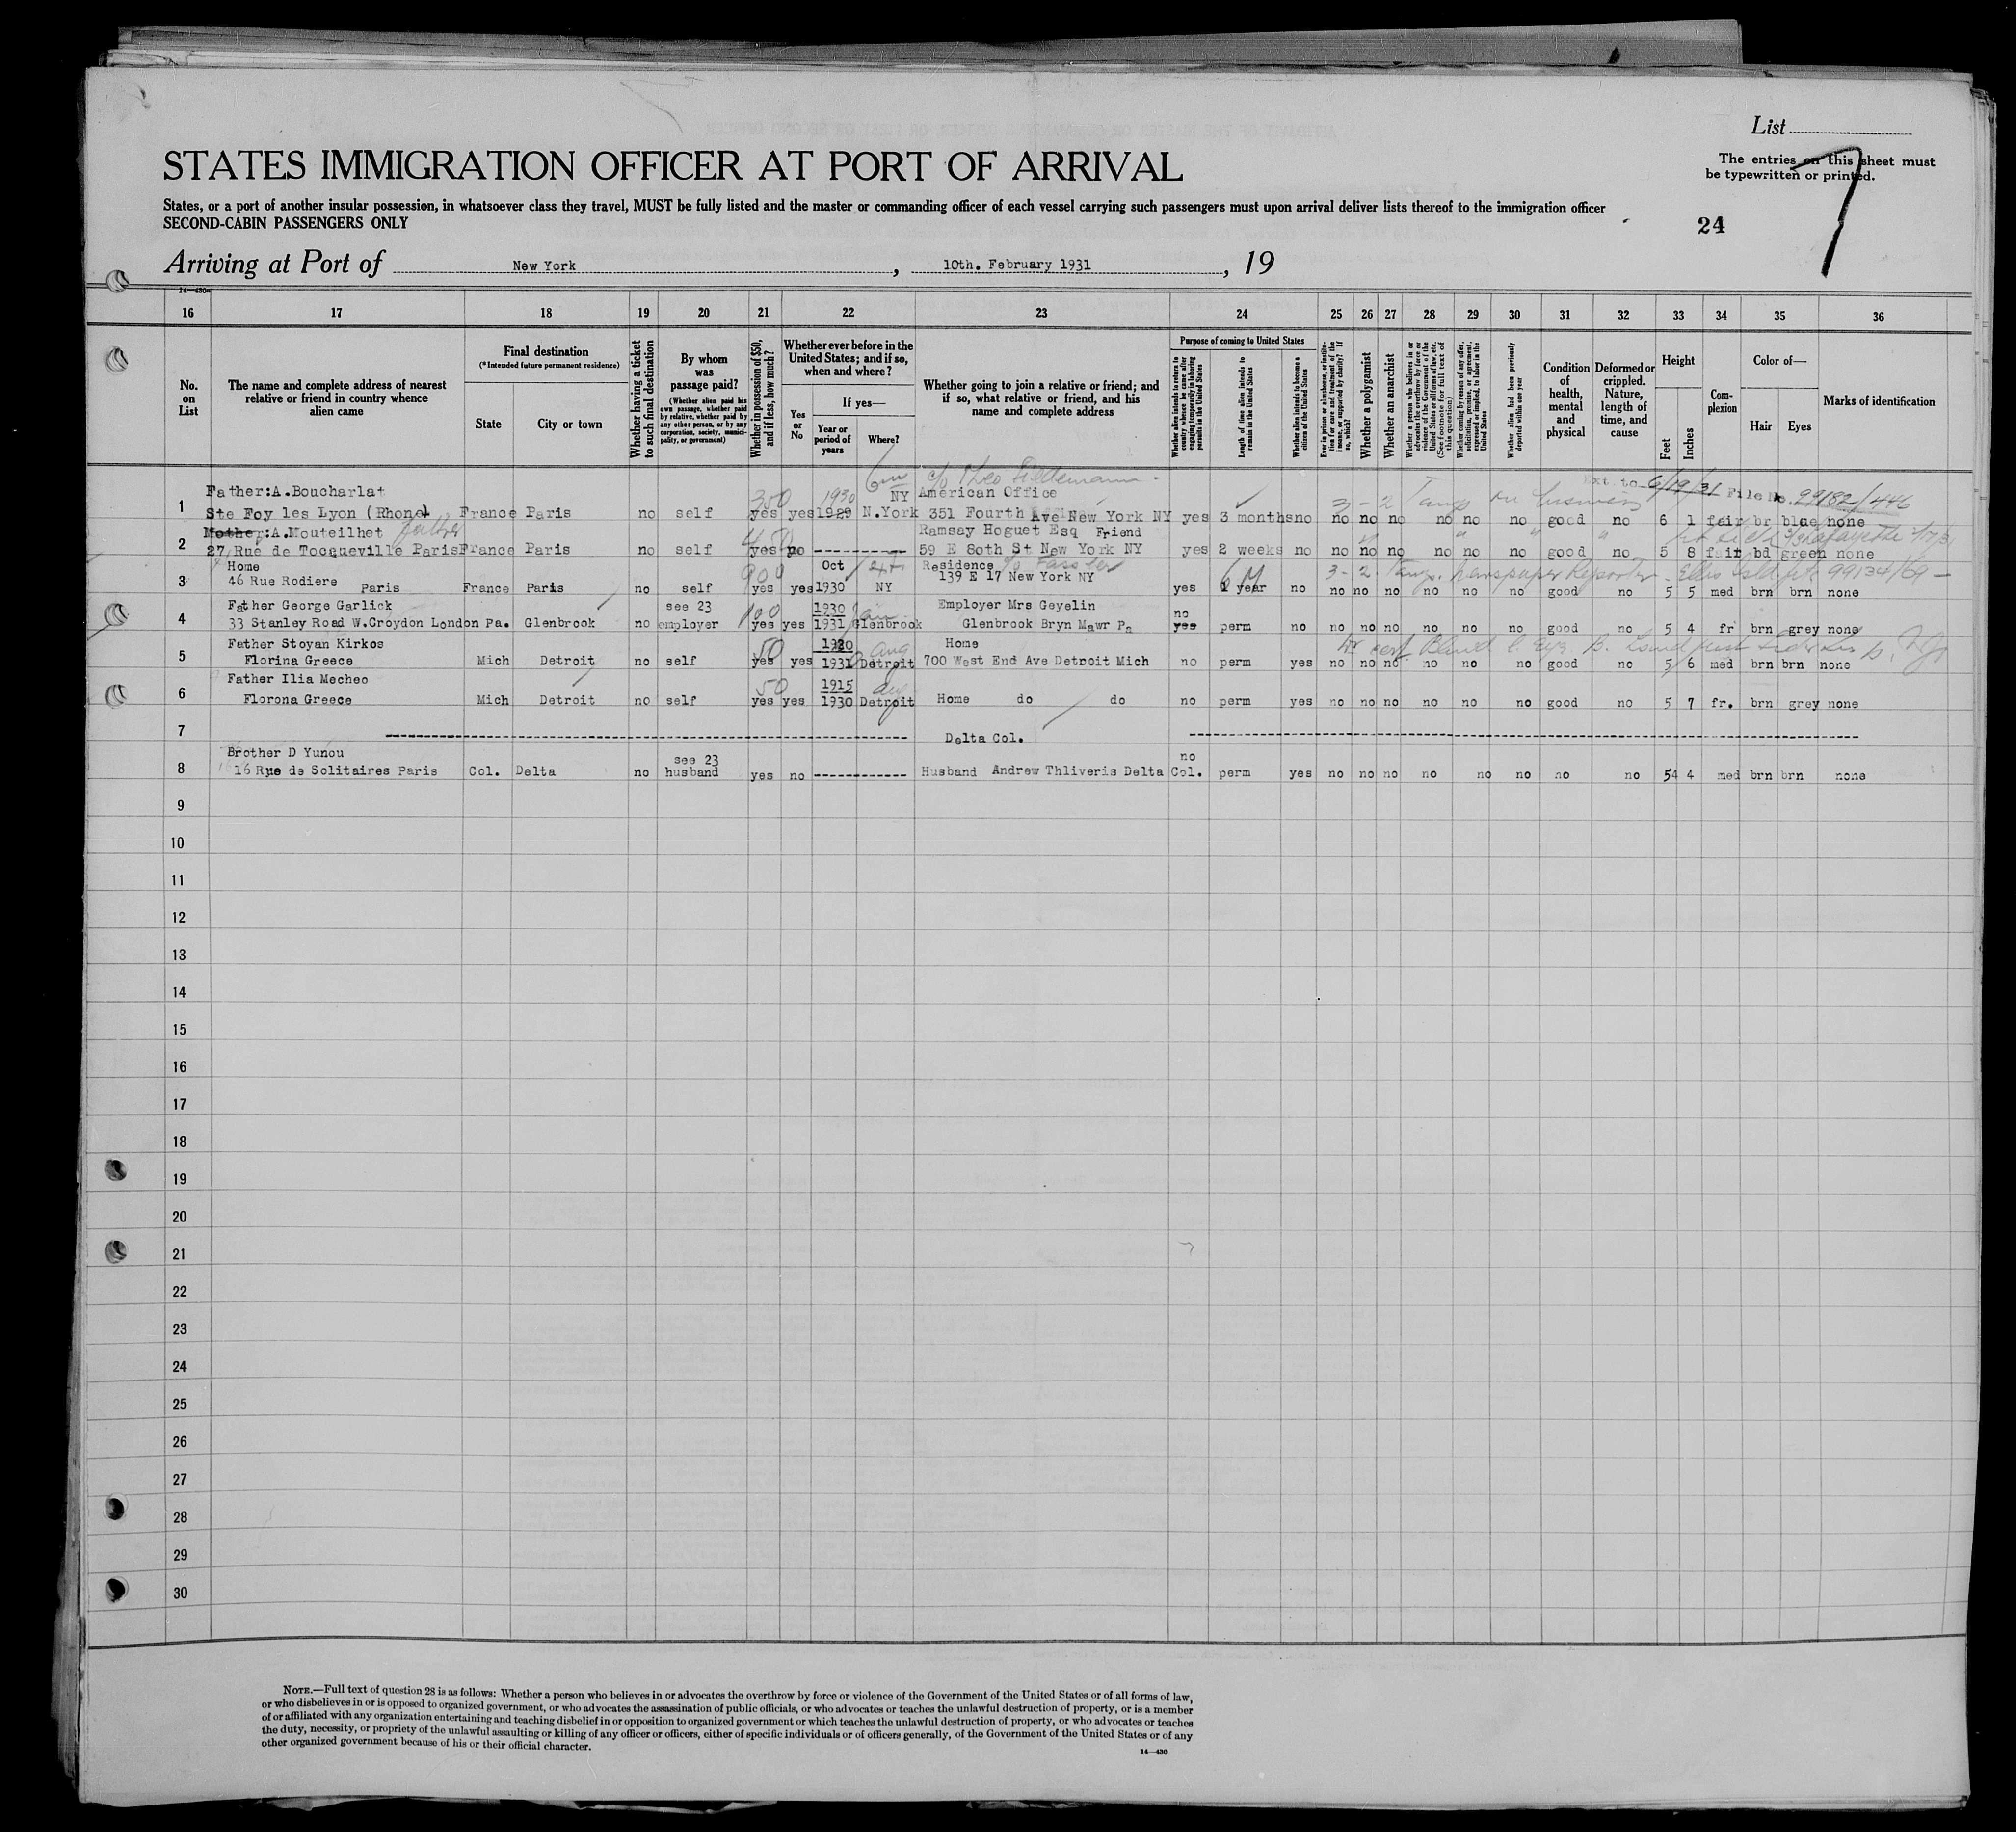 List
The entries on this sheet must
be typewritten or printed.
7
24
STATES IMMIGRATION OFFICER AT PORT OF ARRIVAL
States, or a port of another insular possession, in whatsoever class they travel, MUST be fully listed and the master or commanding officer of each vessel carrying such passengers must upon arrival deliver lists thereof to the immigration officer
SECOND-CABIN PASSENGERS ONLY
Arriving at Port of New York, 10th. February 1931, 19
14—430
16 17 18 19 20 21 22 23 24 25 26 27 28 29 30 31 32 33 34 35 36
No. on List
The name and complete address of nearest relative or friend in country whence alien came
Final destination
(*Intended future permanent residence)
State
City or town
Whether having a ticket to such final destination
By whom was passage paid?
(Whether alien paid his own passage, whether paid by relative, whether paid by any other person, or by any corporation, society, municipality, or government)
Whether in possession of $50, and if less, how much?
Whether ever before in the United States; and if so, when and where?
Yes or No
If yes—
Year or period of years
Where?
Whether going to join a relative or friend; and if so, what relative or friend, and his name and complete address
Purpose of coming to United States
Whether alien intends to return to country whence he came after engaging temporarily in laboring pursuits in the United States
Length of time alien intends to remain in the United States
Whether alien intends to become a citizen of the United States
Ever in prison or almshouse, or institution for care and treatment of the insane, or supported by charity? If so, which?
Whether a polygamist
Whether an anarchist
Whether a person who believes in or advocates the overthrow by force or violence of the Government of the United States or all forms of law, etc. (See footnote for full text of this question)
Whether coming by reason of any offer, solicitation, promise, or agreement, expressed or implied, to labor in the United States
Whether alien had been previously deported within one year
Condition of health, mental and physical
Deformed or crippled. Nature, length of time, and cause
Height
Feet
Inches
Complexion
Color of—
Hair
Eyes
Marks of identification
c/o Theo
Ext. to 6/19/31 File No. 99182/446
Father:A.Boucharlat 350 1930 NY American Office 3-2 Temp on business
1 Ste Foy les Lyon (Rhone) France Paris no self yes yes 1929 N.York 351 Fourth Ave New York NY yes 3 months no no no no no no no good no 6 1 fair br blue none
Mother:A.Mouteilhet father Ramsay Hoguet Esq Friend
2 27,Rue de Tocqueville Paris France Paris no self yes no ---------- 59 E 80th St New York NY yes 2 weeks no no no no no no no good no 5 8 fair bd green none
Home 900 Oct Residence c/o Fassler 6 M 3-2 Temp. Newspaper Reporter - Ellis Isld 99134/69 -
3 46 Rue Rodiere Paris France Paris no self yes yes 1930 NY 139 E 17 New York NY yes 1 year no no no no no no no good no 5 5 med brn brn none
Father George Garlick see 23 100 1930 Employer Mrs Geyelin no
4 33 Stanley Road W.Croydon London Pa. Glenbrook no employer yes yes 1931 Glenbrook Glenbrook Bryn Mawr Pa yes perm no no no no no no no good no 5 4 fr brn grey none
Father Stoyan Kirkos 50 1920 Aug Home
5 Florina Greece Mich Detroit no self yes yes 1931 Detroit 700 West End Ave Detroit Mich no perm yes no no no no no no good no 5 6 med brn brn none
Father Ilia Mecheo 50 1915
6 Florona Greece Mich Detroit no self yes yes 1930 Detroit Home do do no perm yes no no no no no no good no 5 7 fr. brn grey none
7 ---------- Delta Col. ----------
Brother D Yunou see 23 no
8 16 Rue de Solitaires Paris Col. Delta no husband yes no ---------- Husband Andrew Thliveris Delta Col. perm yes no no no no no no no no 54 4 med brn brn none
9
10
11
12
13
14
15
16
17
18
19
20
21
22
23
24
25
26
27
28
29
30
NOTE.—Full text of question 28 is as follows: Whether a person who believes in or advocates the overthrow by force or violence of the Government of the United States or of all forms of law,
or who disbelieves in or is opposed to organized government, or who advocates the assassination of public officials, or who advocates or teaches the unlawful destruction of property, or is a member
of or affiliated with any organization entertaining and teaching disbelief in or opposition to organized government or which teaches the unlawful destruction of property, or who advocates or teaches
the duty, necessity, or propriety of the unlawful assaulting or killing of any officer or officers, either of specific individuals or of officers generally, of the Government of the United States or of any
other organized government because of his or their official character.
14—430